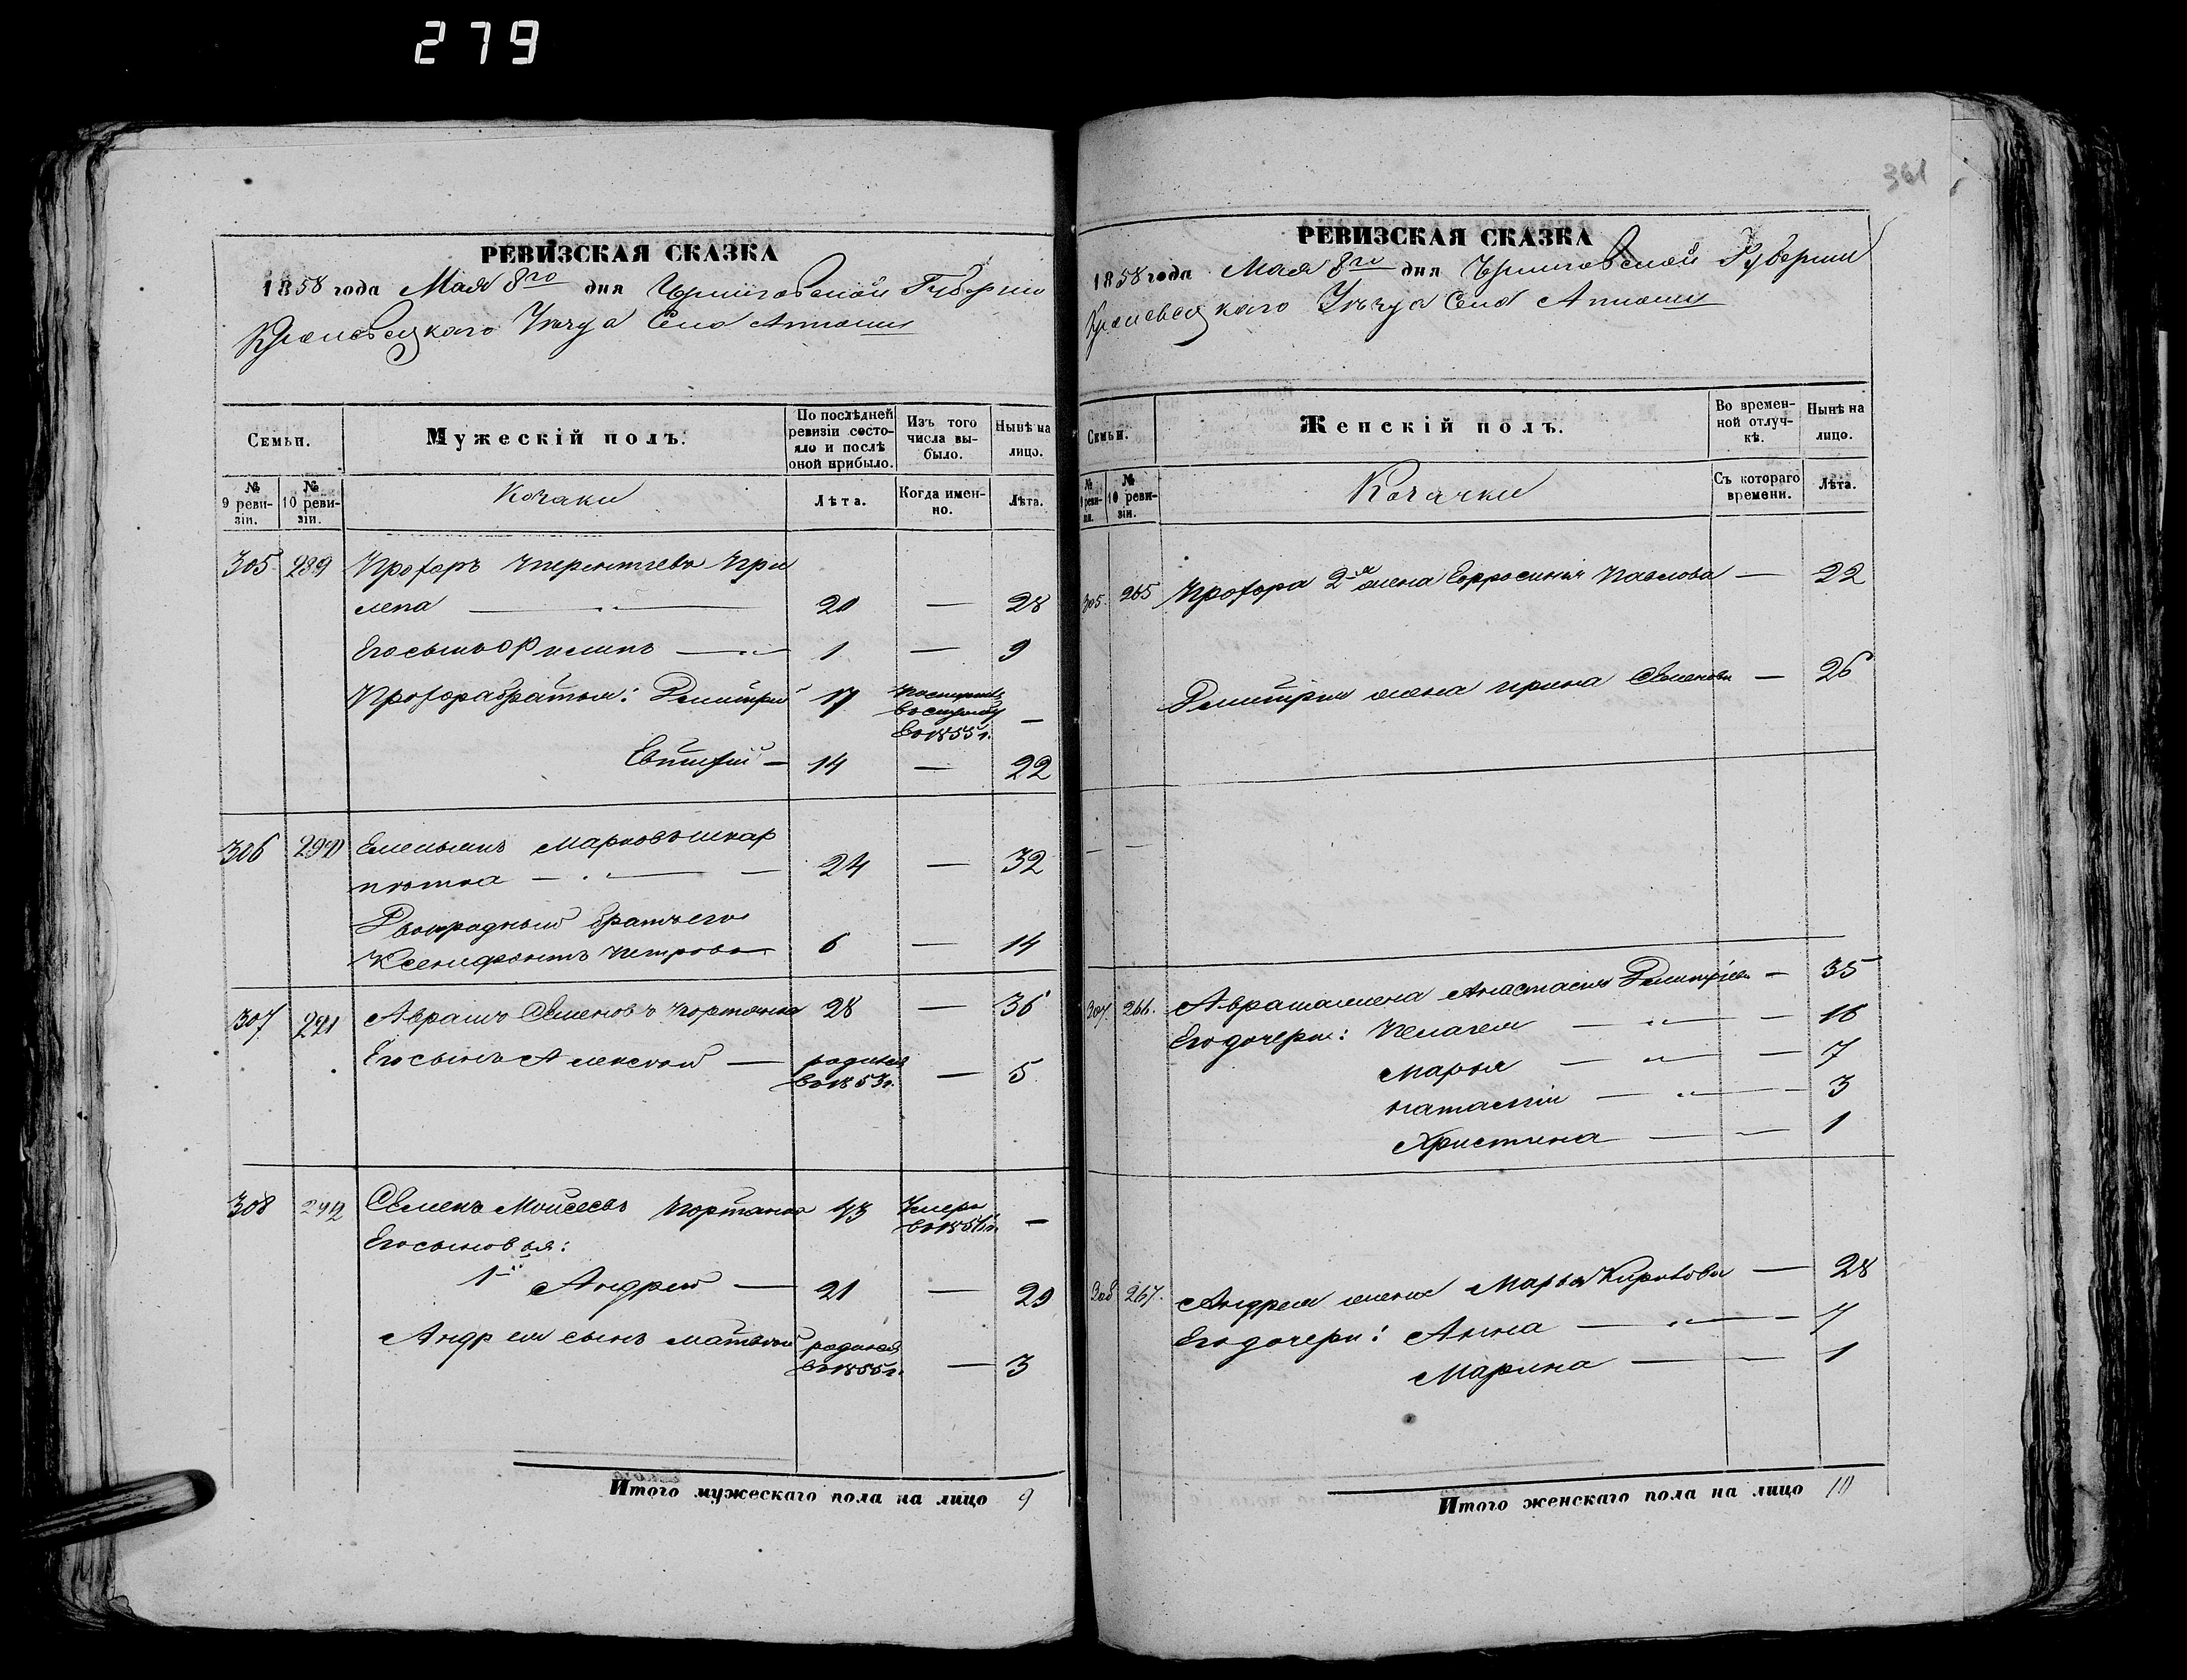 279
РЕВИЗСКАЯ СКАЗКА
1858 года Мая 8го дня Черниговской Губернии
Кролевецкаго Уѣзда Села
Семьи.
Мужескій полъ.
По послѣдней ревизіи состояло и послѣ оной прибыло.
Изъ того числа выбыло.
Нынѣ на лицо.
№ 9 ревизіи.
№ 10 ревизіи.
Козаки
Лѣта.
Когда именно.
Лѣта.
305 289 Прохоръ
20 — 28
Его сынъ Филипъ — 1 — 9
Прохора братья: Дмитрій 17 Поступилъ
въ службу —
въ 1855 г.
Евтихій — 14 — 22
306 290 Емельянъ Марковъ Шкар
потка — 24 — 32
Двоюродный братъ его
Ксенофонтъ Петровъ 6 — 14
307 291 Аврамъ Семеновъ Портянка 28 — 36
Его сынъ Алексѣй — родился
въ 1853 г. — 5
308 292 Семенъ Моисеевъ Портянка 43 Умеръ —
Его сыновья:
1й Андрей — 21 — 29
Андрея сынъ Матвѣй родился
въ 1855 г. — 3
Итого мужескаго пола на лицо 9
361
РЕВИЗСКАЯ СКАЗКА
1858 года Мая 8го дня Черниговской Губернии
Кролевецкаго Уѣзда Села
Семьи.
Женскій полъ.
Во временной отлучкѣ.
Нынѣ на лицо.
№ 9 ревизіи.
№ 10 ревизіи.
Козачки
Съ котораго времени.
Лѣта.
305. 265 Прохора 2я жена Ефросинія Павлова — 22
Дмитрія жена Ирина Семенова — 26
— —
307. 266. Аврама жена Анастасія Дмитріева — 35
Его дочери: Пелагея — 16
Марья — 7
Наталія — 3
Христина — 1
308 267. Андрея жена Марья Кирилова — 28
Его дочери: Анна — 7
Марина — 1
Итого женскаго пола на лицо 10